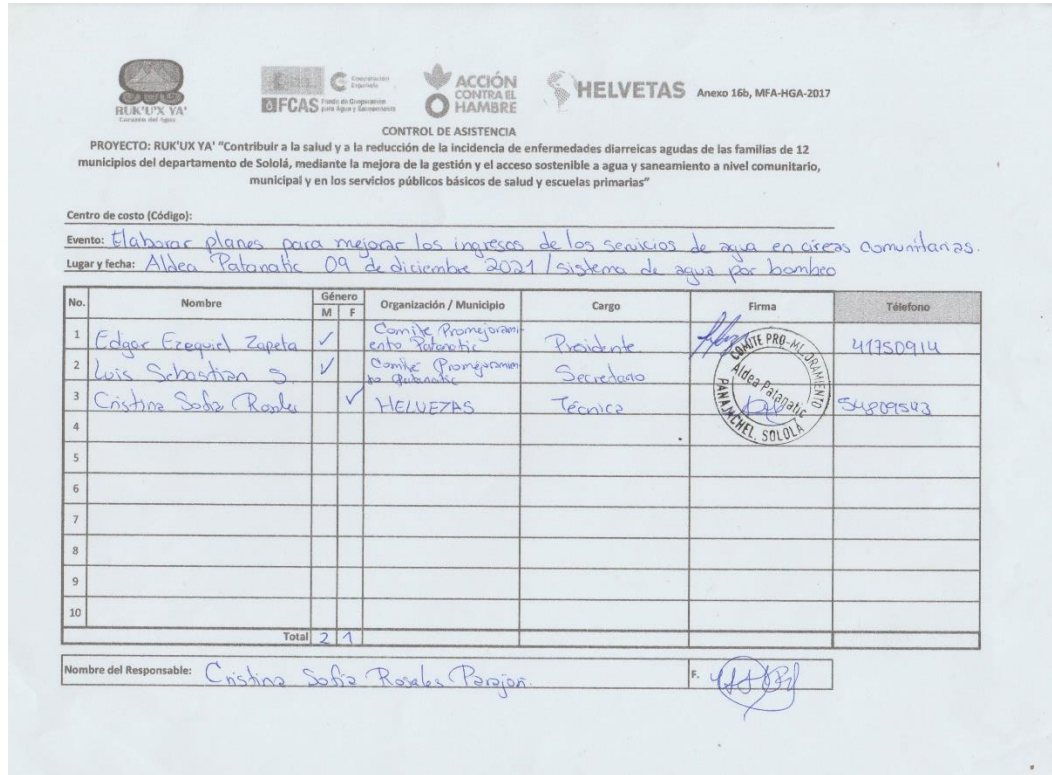 RUK'U'X YA'
Corazón del Agua
Cooperación Española
FCAS Fondo de Cooperación para Agua y Saneamiento
ACCIÓN CONTRA EL HAMBRE
HELVETAS Anexo 16b, MFA-HGA-2017
CONTROL DE ASISTENCIA
PROYECTO: RUK'UX YA' "Contribuir a la salud y a la reducción de la incidencia de enfermedades diarreicas agudas de las familias de 12
municipios del departamento de Sololá, mediante la mejora de la gestión y el acceso sostenible a agua y saneamiento a nivel comunitario,
municipal y en los servicios públicos básicos de salud y escuelas primarias"
Centro de costo (Código):
Evento: Elaborar planes para mejorar los ingresos de los servicios de agua en áreas comunitarias.
Lugar y fecha: Aldea Patanatic 09 de diciembre 2021 / sistema de agua por bombeo
No. Nombre Género Organización / Municipio Cargo Firma Télefono
M F
1 Edgar Ezequiel Zapeta ✓ Comite Promejoramiento Patanatic Presidente 41750914
2 Luis Sebastian S. ✓ Comite Promejoramiento Patanatic Secretario
3 Cristina Sofia Rosales ✓ HELVETAS Técnica 54809543
COMITE PRO-MEJORAMIENTO
Aldea Patanatic
PANAJACHEL, SOLOLA
4
5
6
7
8
9
10
Total 2 1
Nombre del Responsable: Cristina Sofia Rosales F.